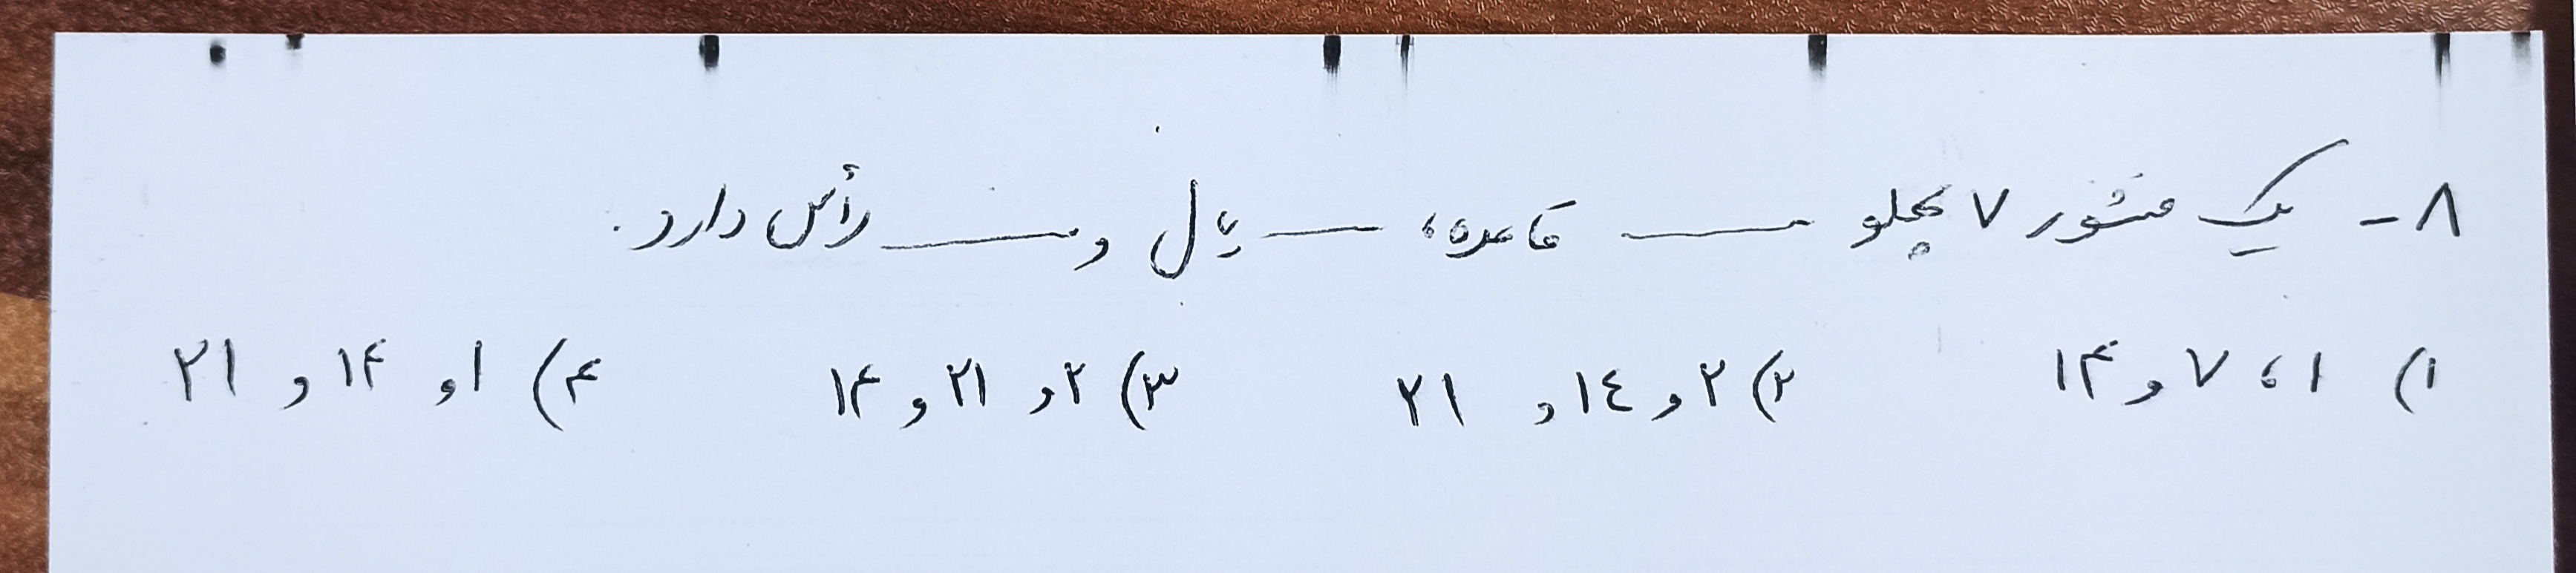 ۸- یک منشور ۷ پهلو ــــ قاعده، ــــ یال و ــــ رأس دارد.
۱) ۱، ۷ و ۱۴ ۲) ۲ و ۱٤ و ۲۱ ۳) ۲ و ۲۱ و ۱۴ ۴) ۱ و ۱۴ و ۲۱